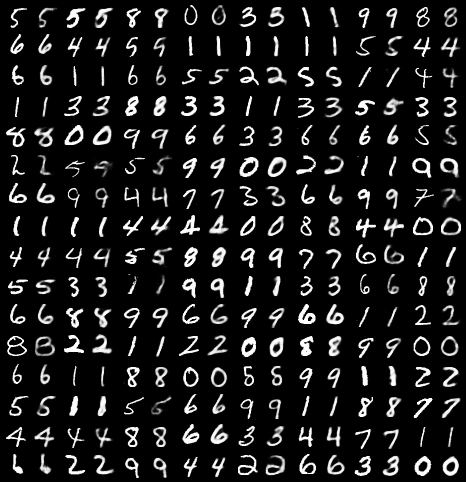 5 5 5 5 8 8 0 0 3 3 1 1 9 9 8 8
6 6 4 4 5 5 1 1 1 1 1 1 5 5 4 4
6 6 1 1 6 6 5 5 2 2 5 5 1 1 4 4
1 1 3 3 8 8 3 3 1 1 3 3 5 5 3 3
8 8 0 0 9 9 6 6 3 3 6 6 6 6 5 5
2 2 5 5 5 5 9 9 0 0 2 2 1 1 9 9
6 6 9 9 4 4 7 7 3 3 6 6 9 9 7 7
1 1 1 1 4 4 4 4 0 0 8 8 4 4 0 0
4 4 4 9 5 5 8 8 9 9 7 7 6 6 1 1
5 5 3 3 1 1 9 9 1 1 3 3 6 6 8 8
6 6 8 8 9 9 6 6 9 9 6 6 1 1 2 2
8 8 2 2 1 1 2 2 0 0 8 8 9 9 0 0
6 6 1 1 8 8 0 0 5 5 9 9 1 1 2 2
5 5 1 1 5 5 6 6 9 9 1 1 8 8 7 7
4 4 4 4 8 8 6 6 3 3 4 4 7 7 1 1
6 6 2 2 9 9 4 4 2 2 6 6 3 3 0 0